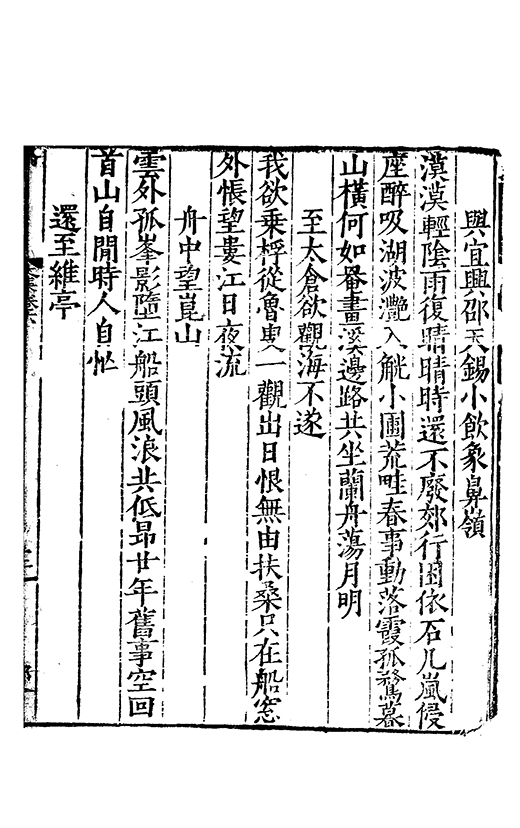 與宜興邵天錫小飲象鼻嶺
漠漠輕陰雨復晴晴時還不廢郊行困依石几嵐侵
座醉吸湖波灧入觥小圃荒畦春事動落霞孤鶩暮
山橫何如罨畫溪邊路共坐蘭舟蕩月明
至太倉欲觀海不遂
我欲乘桴從魯叟一觀出日恨無由扶桑只在船窓
外悵望婁江日夜流
舟中望崑山
雲外孤峯影墮江船頭風浪共低昂廿年舊事空回
首山自閒時人自忙
還至維亭